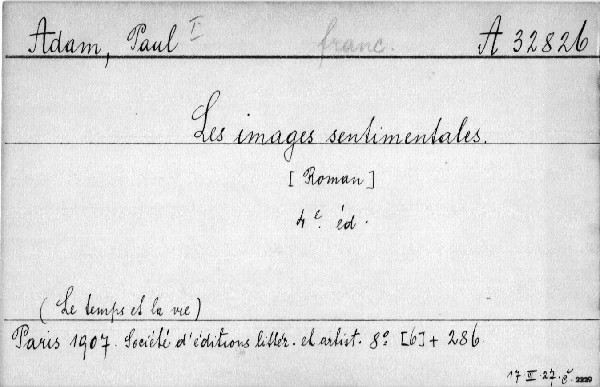 Adam, Paul I. franc. A 32826
Les images sentimentales.
[Roman]
4e. éd.
(Le temps et la vie)
Paris 1907. Société d'éditions littér. et artist. 8° [6] + 286
17 III 27. č. 2220